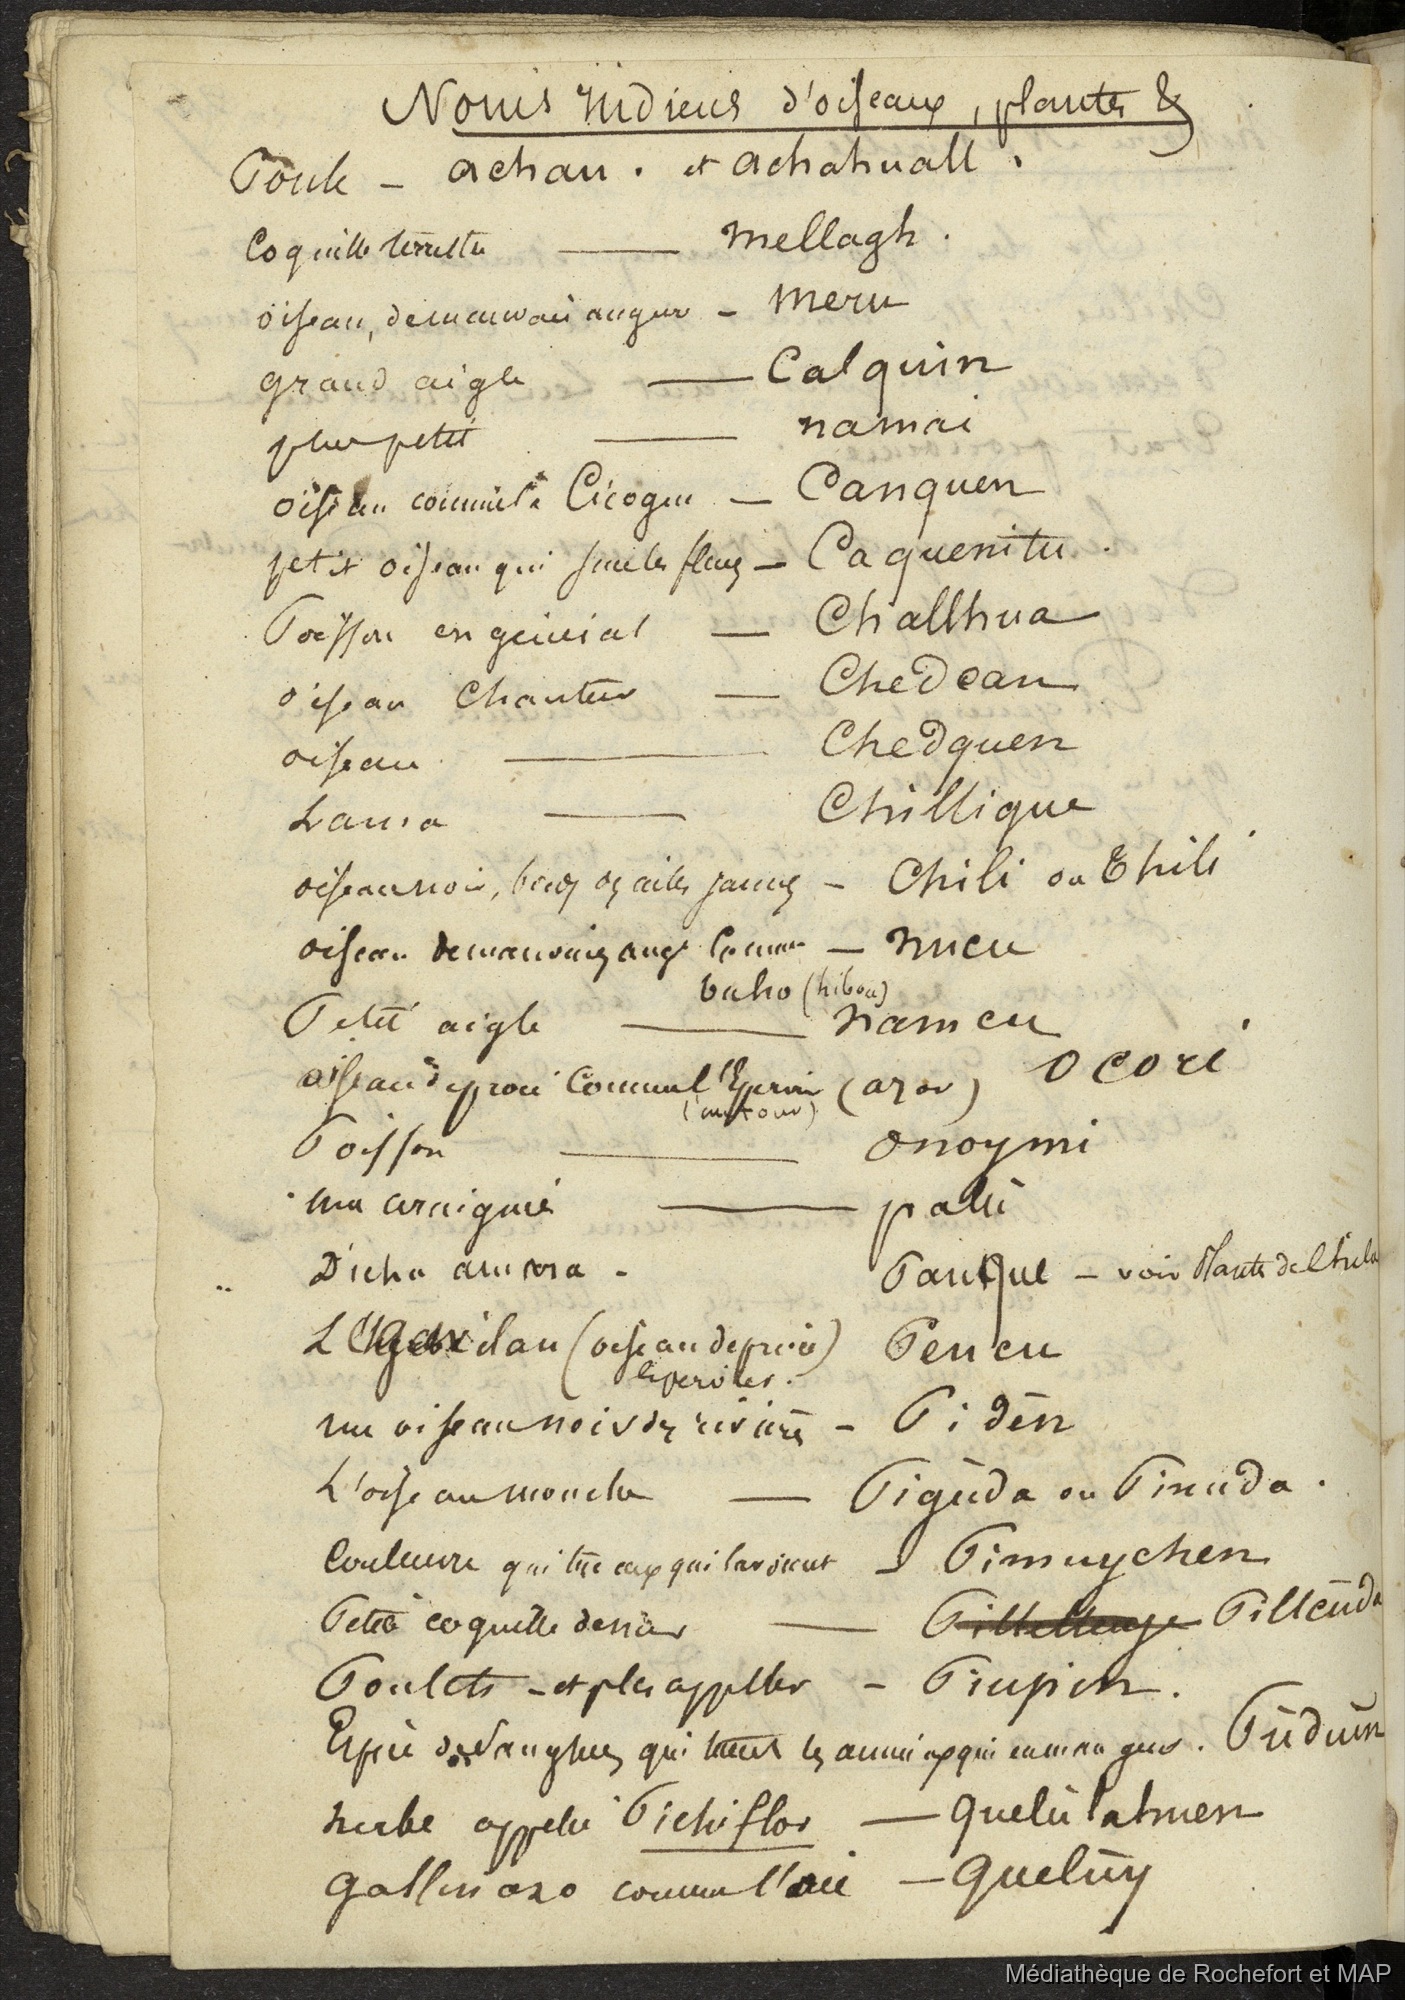 Noms indiens d'oiseaux, plantes &
Poule - achau. et achahuall.
Coquille terrestre — mellagh.
oiseau, de mauvais augure - meru
grand aigle — Calquin
plus petit — namai
oiseau comme la Cicogne - Canquen
petit oiseau qui suce les fleurs - Caquenitu.
Poisson en général — Challhua
oiseau chanteur — Chedcan
oiseau — Chedquen
Lama — Chillique
oiseau noir, bec et ailes jaunes - Chili ou Thili
oiseau de mauvais aug. comme - nucu
buho (hibou)
Petit aigle — namcu
oiseau de proie comme l'Epervier (azor) Ocori
(l'autour)
Poisson — onoymi
une araignée — pallu
Dicha - Panque - voir Plantes de Chile
L gavilan (oiseau de proie) Peucu
éperviers.
un oiseau noir des rivières - Pidèn
L'oiseau mouche — Pigüda ou Pinuda.
Couleuvre qui tue ceux qui la voient - Pimuychen
Petite coquille de mer — Pilleüda
Poulets - et p les appeller - Piupiu.
Espèce de Sangsues qui tuent les animaux qui en mangent. Püdüin
herbe appelée Pichiflor — Quelülahuen
Gallinazo comme l'oie — Queluy
Médiathèque de Rochefort et MAP